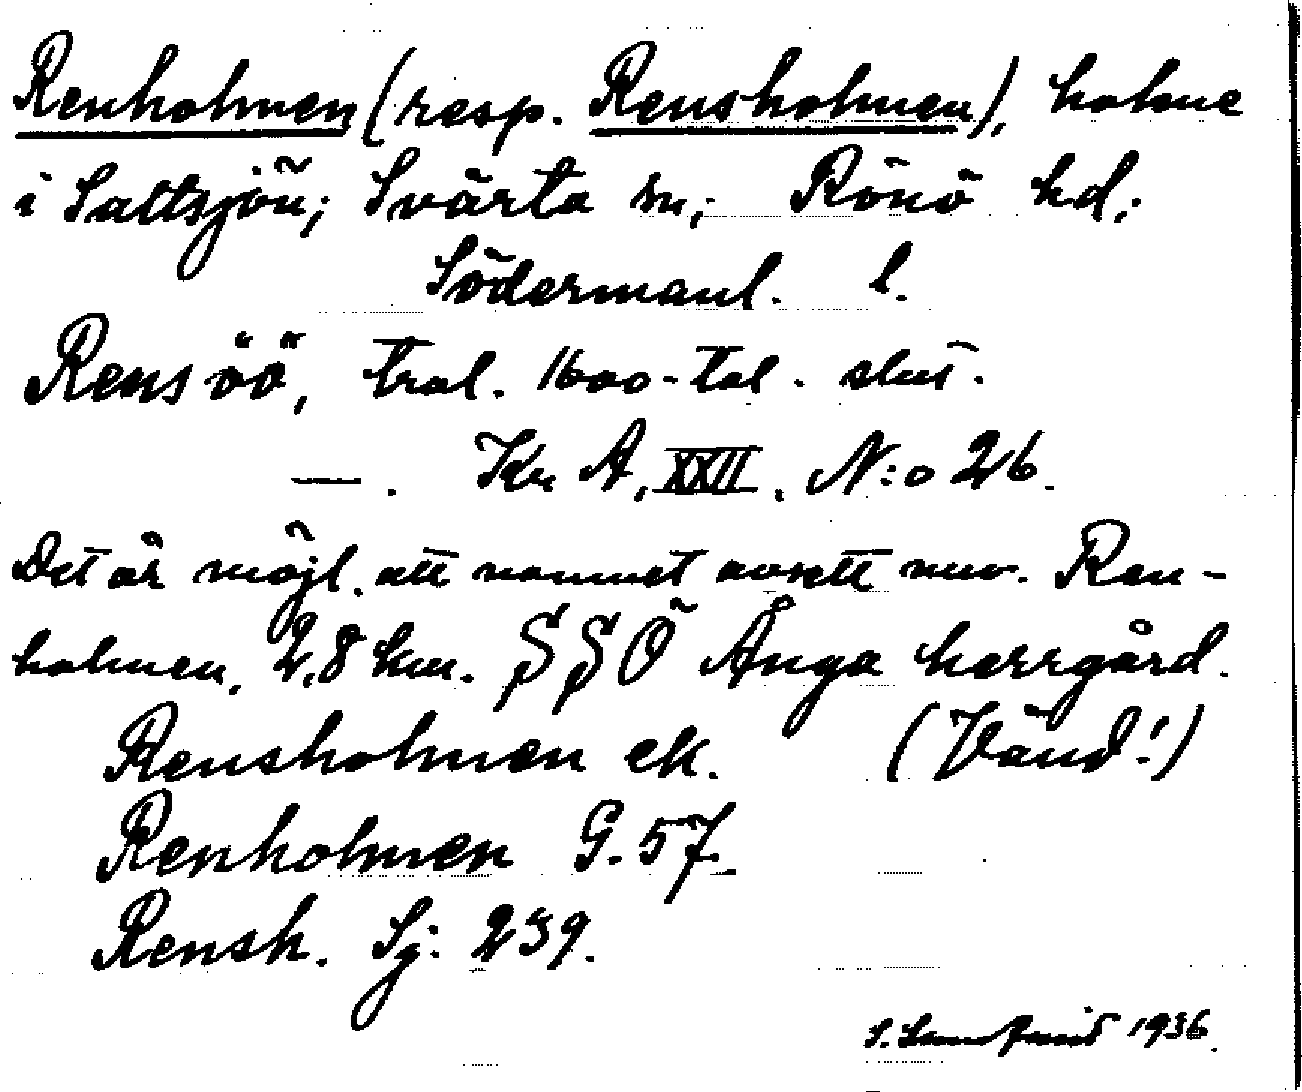 Renholmen (resp. Rensholmen), holme
i Saltsjön; Svärta sn; Rönö hd;
Södermanl. l.
Rens öö, tral. 1600-tal. slut.
— . Kr. A, XXII. N:o 26.
Det är möjl. att namnet avsett nuv. Ren-
holmen, 2,8 km. SSÖ Ånga herrgård.
Rensholmen ek. (Vänd!)
Renholmen G. 57.
Rensh. Sj: 239.
S. 1936.